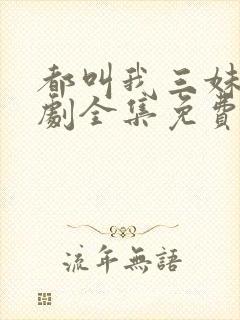 都叫我三妹
劇全集免費
流年無語